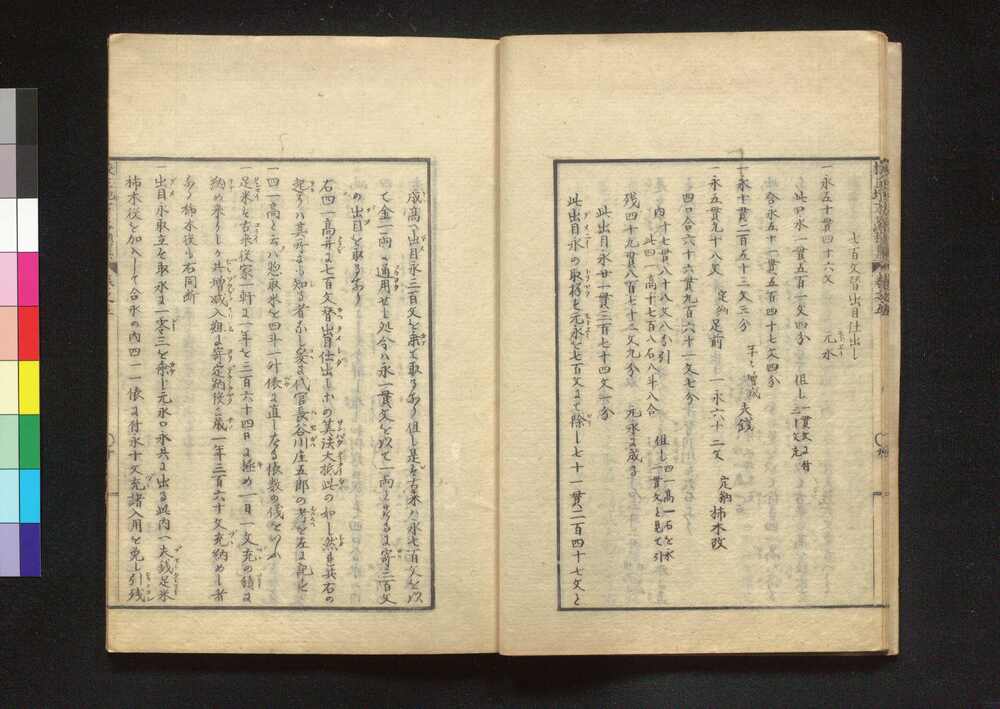 七百文替出目仕出し
一永五十貫四十六文 元永
此口永一貫五百一文四分 但し一貫文に付三十文充
合永五十一貫五百四十七文四分
一永十貫二百五十三文三分 年々増減 夫銭
一永五貫九十八文 定納足前 一永六十二文 定納柿木改
四口合六十六貫九百六十一文七分
内十七貫八十八文八分引 但し四一高一石を永一貫文と見て引
此四一高十七石八斗八合
残四十九貫八百七十二文九分 元永と成る
此出目永廿一貫三百七十四文一分
此出目永の取様元永を七百文にて除し七十一貫二百四十七文と
成高へ出目永三百文を乗て取るあり但し是は古来は永七百文を以
て金一両に通用せし処今は永一貫文を以て一両とする に寄三百文
の出目を取るあり
右四一高并に七百文替出目仕出しホの其法大抵此の如し然も其右の
起りは其所にも知る者なし爰に代官長谷川庄五郎の考を左に記しと
一四一高と云は惣取米を四斗一升俵に直しなる俵数の儀をいふ
足米を古来役家一軒に一年を三百六十四日に極め一日一文充の積に
納め来りしが其増減入組に寄定納後は歳一年三百六十文充納めし者
あり柿木役も右同断
一出目永取立を取永に一零三を乗し元永口永共に出る此内へ夫銭足米
柿木役を加入して合永の内四一一俵に付永十文充諸入用を免し引残